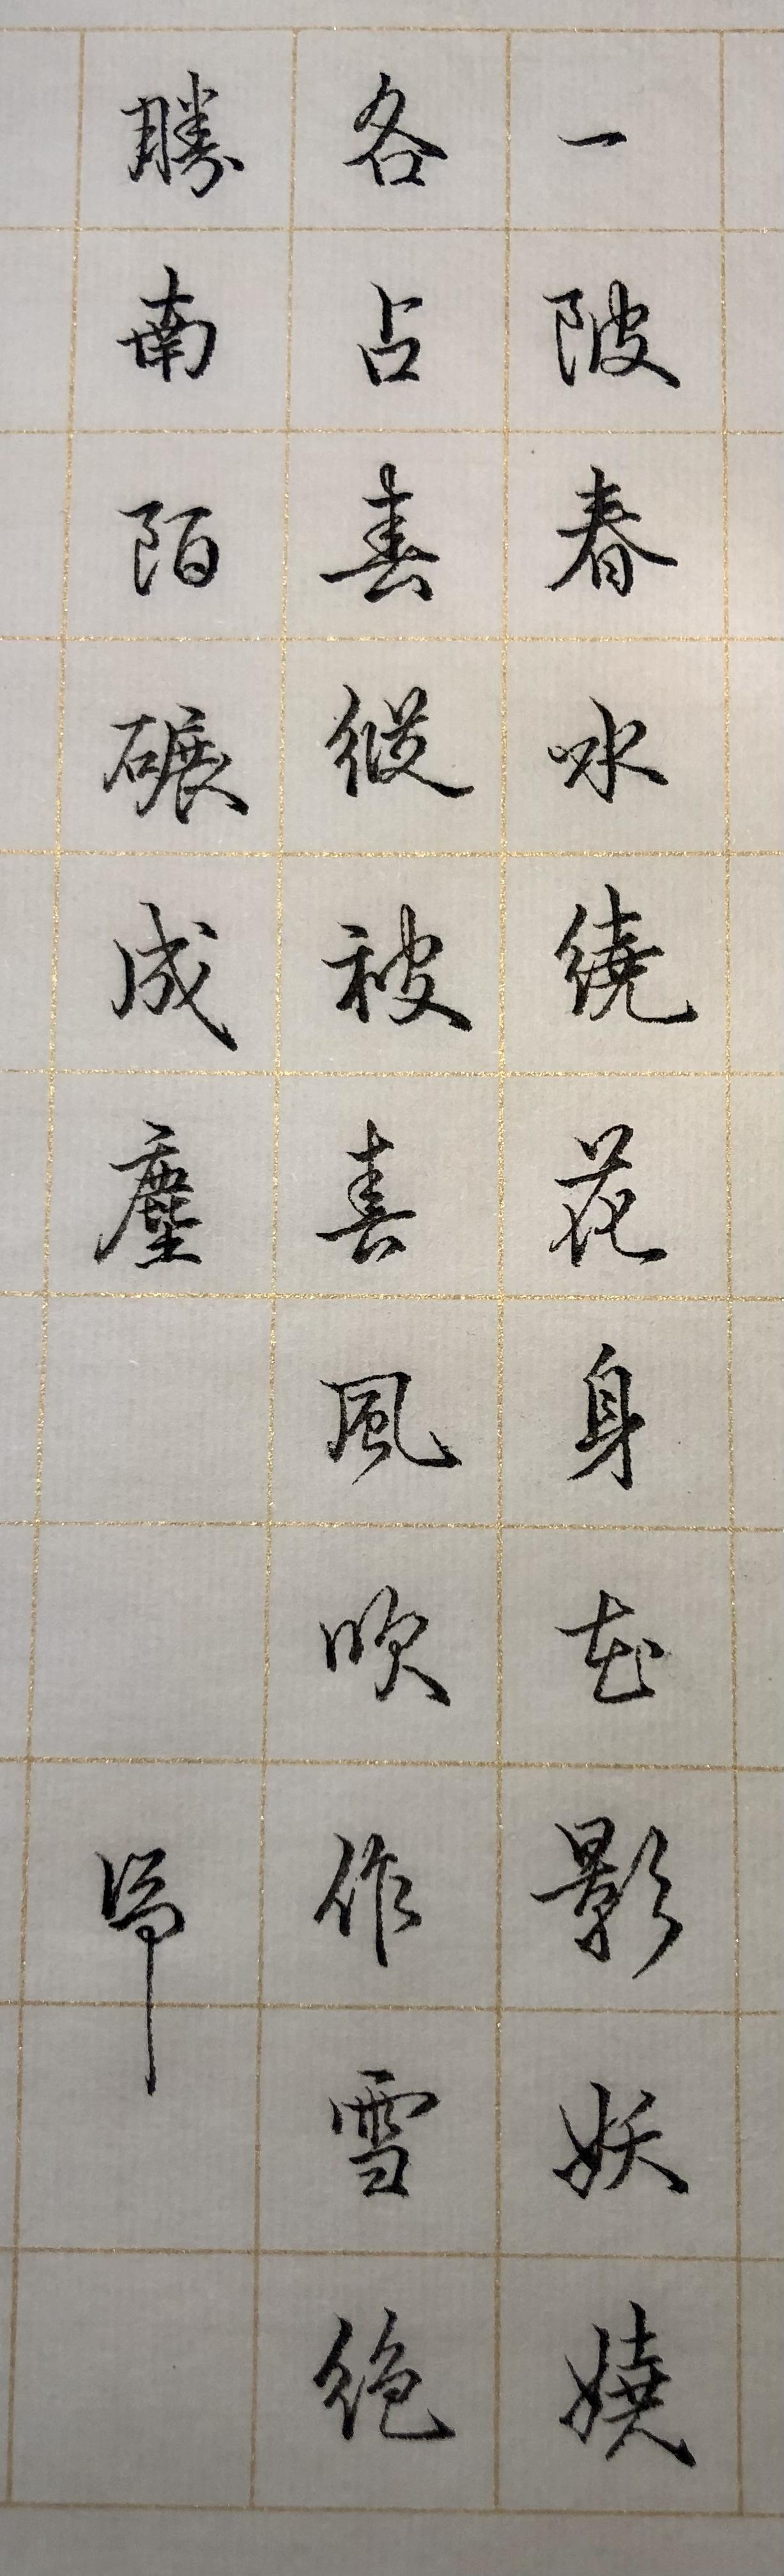 一陂春水繞花身花影妖嬈
各占春縱被春風吹作雪絕
勝南陌碾成塵